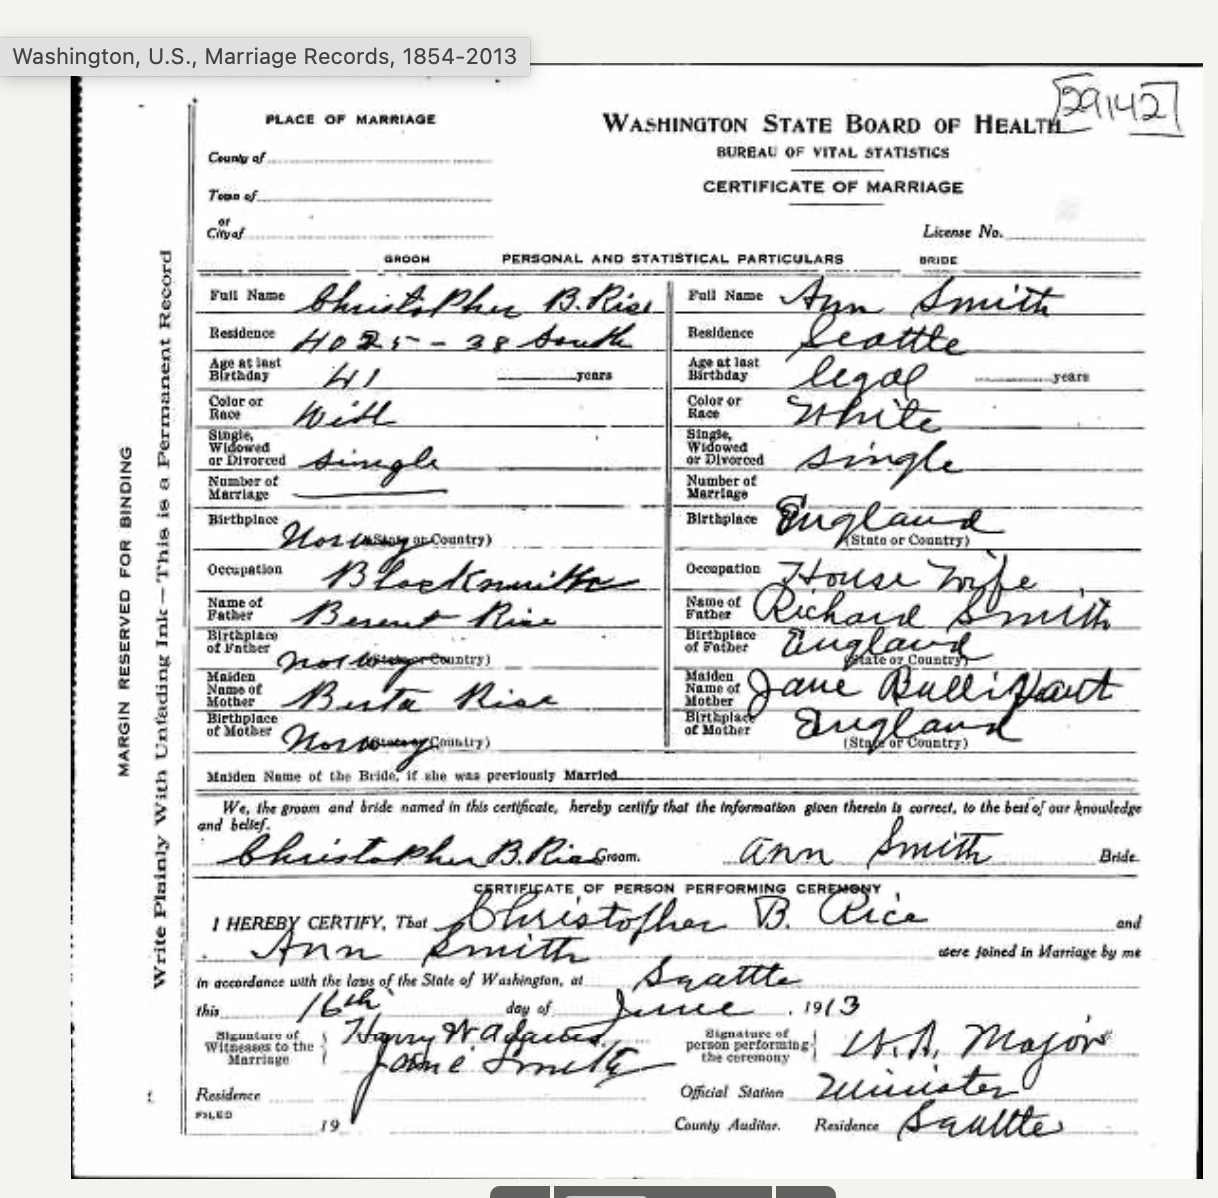 Washington, U.S., Marriage Records, 1854-2013
29142
PLACE OF MARRIAGE
WASHINGTON STATE BOARD OF HEALTH
BUREAU OF VITAL STATISTICS
CERTIFICATE OF MARRIAGE
County of
Town of
or
City of
License No.
GROOM PERSONAL AND STATISTICAL PARTICULARS BRIDE
Full Name Christopher B. Rise
Full Name Ann Smith
Residence 4025 - 38 South
Residence Seattle
Age at last Birthday 41 years
Age at last Birthday legal years
Color or Race
Color or Race White
Single, Widowed or Divorced single
Single, Widowed or Divorced single
Number of Marriage
Number of Marriage
Birthplace Norway (State or Country)
Birthplace England (State or Country)
Occupation
Occupation House Wife
Name of Father Berent Rise
Name of Father Richard Smith
Birthplace of Father Norway (State or Country)
Birthplace of Father England (State or Country)
Maiden Name of Mother Berta Rise
Maiden Name of Mother Jane
Birthplace of Mother Norway (State or Country)
Birthplace of Mother England (State or Country)
Maiden Name of the Bride, if she was previously Married
We, the groom and bride named in this certificate, hereby certify that the information given therein is correct, to the best of our knowledge
and belief.
Christopher B. Rise Groom. Ann Smith Bride
CERTIFICATE OF PERSON PERFORMING CEREMONY
I HEREBY CERTIFY, That Christopher B. Rice and
Ann Smith were joined in Marriage by me
in accordance with the laws of the State of Washington, at Seattle
this 16th day of June, 1913
Signature of Witnesses to the Marriage Harry W Adams
Jane Smith
Signature of person performing the ceremony W. A. Major
Residence
Official Station Minister
FILED
19
County Auditor. Residence Seattle
MARGIN RESERVED FOR BINDING
Write Plainly With Unfading Ink—This is a Permanent Record